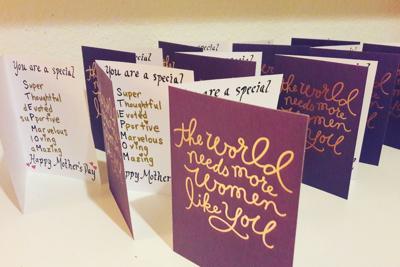 You are a special
Super
Thoughtful
dEvoted
suPportive
Marvelous
lOving
aMazing
Happy Mother's Day
You are a special
Super
Thoughtful
Evoted
Pportive
Marvelous
Oving
Mazing
Happy Mother
a special
the world
needs more
women
like you
the world
needs more
women
like you